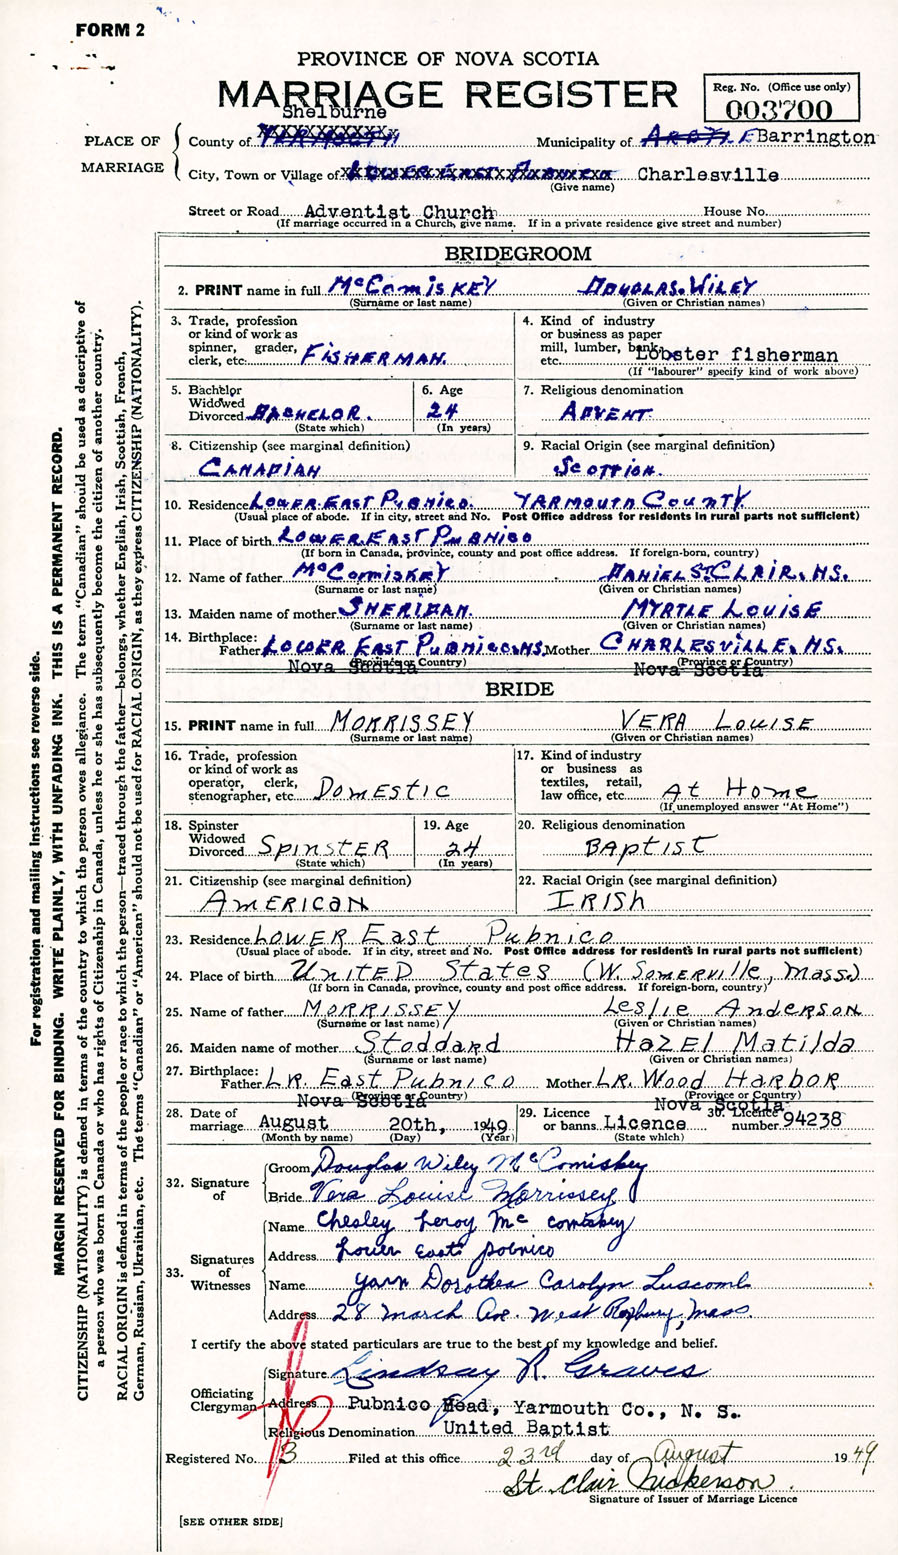 FORM 2
PROVINCE OF NOVA SCOTIA
MARRIAGE REGISTER
Reg. No. (Office use only)
003700
PLACE OF MARRIAGE
Shelburne
County of Municipality of Barrington
City, Town or Village of Charlesville
(Give name)
Street or Road Adventist Church House No.
(If marriage occurred in a Church, give name. If in a private residence give street and number)
BRIDEGROOM
2. PRINT name in full McComisKEY DOUGLAS. WILEY
(Surname or last name) (Given or Christian names)
3. Trade, profession or kind of work as spinner, grader, clerk, etc. FISHERMAN.
4. Kind of industry or business as paper mill, lumber, bank, etc. Lobster fisherman
(If "labourer" specify kind of work above)
5. Bachelor Widowed Divorced BACHELOR.
(State which)
6. Age 24
(In years)
7. Religious denomination
ADVENT
8. Citizenship (see marginal definition)
CANADIAN
9. Racial Origin (see marginal definition)
SCOTTISH.
10. Residence LOWER EAST PUBNICO. YARMOUTH COUNTY
(Usual place of abode. If in city, street and No. Post Office address for residents in rural parts not sufficient)
11. Place of birth LOWER EAST PUBNICO
(If born in Canada, province, county and post office address. If foreign-born, country)
12. Name of father McComisKEY DANIEL ST. CLAIR. NS.
(Surname or last name) (Given or Christian names)
13. Maiden name of mother SHERIDAN. MYRTLE LOUISE
(Surname or last name) (Given or Christian names)
14. Birthplace:
Father LOWER EAST PUBNICO. NS. Mother CHARLESVILLE. NS.
Nova Scotia (Province or Country) Nova Scotia (Province or Country)
BRIDE
15. PRINT name in full MORRISSEY VERA LOUISE
(Surname or last name) (Given or Christian names)
16. Trade, profession or kind of work as operator, clerk, stenographer, etc. DOMESTIC
17. Kind of industry or business as textiles, retail, law office, etc. At Home
(If unemployed answer "At Home")
18. Spinster Widowed Divorced SPINSTER
(State which)
19. Age 24
(In years)
20. Religious denomination
BAPTIST
21. Citizenship (see marginal definition)
AMERICAN
22. Racial Origin (see marginal definition)
IRISH
23. Residence LOWER East Pubnico
(Usual place of abode. If in city, street and No. Post Office address for residents in rural parts not sufficient)
24. Place of birth UNITED States (W. SOMERVILLE, MASS.)
(If born in Canada, province, county and post office address. If foreign-born, country)
25. Name of father MORRISSEY Leslie ANDERSON
(Surname or last name) (Given or Christian names)
26. Maiden name of mother Stoddard HAZEL Matilda
(Surname or last name) (Given or Christian names)
27. Birthplace:
Father LR. East Pubnico Mother LR. Wood Harbor
Nova Scotia (Province or Country) Nova Scotia (Province or Country)
28. Date of marriage August 20th, 1949
(Month by name) (Day) (Year)
29. Licence or banns Licence
(State which)
30. Licence number 94238
32. Signature of
Groom Douglas Wiley McComiskey
Bride Vera Louise Morrissey
33. Signatures of Witnesses
Name Chesley Leroy Mc comiskey
Address Lower East pubnico
Name Dorothea Carolyn Luscomb
Address 28 March Ave. West Roxbury, Mass.
I certify the above stated particulars are true to the best of my knowledge and belief.
Officiating Clergyman
Signature Lindsay R. Graves
Address Pubnico Head, Yarmouth Co., N. S.
Religious Denomination United Baptist
Registered No. 3 Filed at this office 23rd day of August 1949
St. Clair Nickerson
Signature of Issuer of Marriage Licence
[SEE OTHER SIDE]
For registration and mailing instructions see reverse side.
MARGIN RESERVED FOR BINDING. WRITE PLAINLY, WITH UNFADING INK. THIS IS A PERMANENT RECORD.
CITIZENSHIP (NATIONALITY) is defined in terms of the country to which the person owes allegiance. The term "Canadian" should be used as descriptive of
a person who was born in Canada or who has rights of Citizenship in Canada, unless he or she has subsequently become the citizen of another country.
RACIAL ORIGIN is defined in terms of the people or race to which the person—traced through the father—belongs, whether English, Irish, Scottish, French,
German, Russian, Ukrainian, etc. The terms "Canadian" or "American" should not be used for RACIAL ORIGIN, as they express CITIZENSHIP (NATIONALITY).